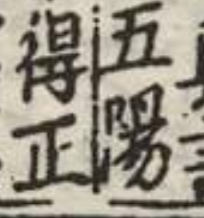 五陽
得正